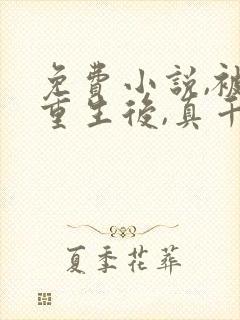 免費小說,被
重生後,真千
夏季花葬